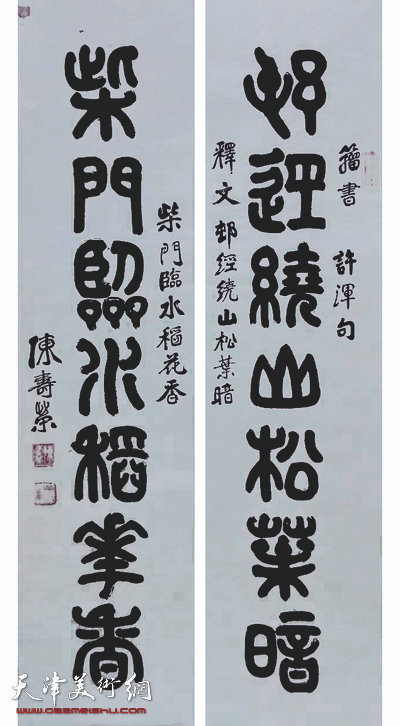 籀書 許渾句
邨逕繞山松葉暗
釋文 邨經繞山松葉暗
柴門臨水稻花香
柴門臨水稻華香
陳壽榮
天津美術網
www.022meishu.com